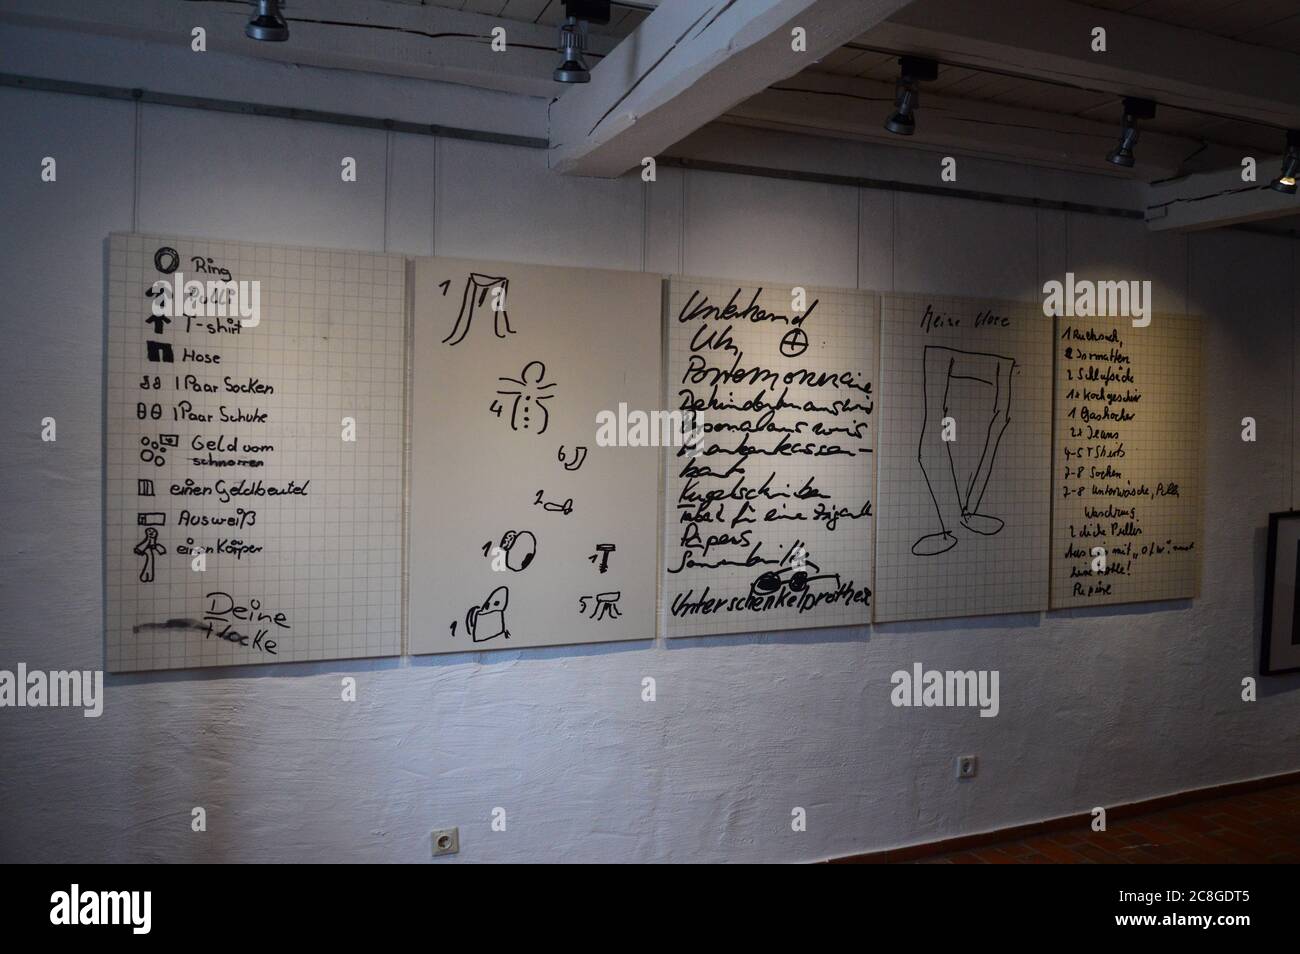 Ring
Pulli
T-shirt
Hose
1 Paar Socken
1 Paar Schuhe
Geld vom
schnorren
einen Geldbeutel
Ausweiß
einen Körper
Deine
Flocke
1
4
6
2
1
1
5
1
Unterhemd
Uhr
Portemonnaie
Personalausweis
Krankenkassen-
karte
Kugelschreiber
Tabak für eine Zigarette
Papers
Sonnenbrille
Unterschenkelprothese
Meine Hose
1 Rucksack,
2 Isomatten
2 Schlafsäcke
1x Kochgeschirr
1 Gaskocher
2x Jeans
4-5 T Shirts
7-8 Socken
7-8 Unterwäsche, Pulli
2 dicke Pullis
Ausweis mit "OfW" und
Papiere
alamy
Image ID: 2C8GDT5
www.alamy.com